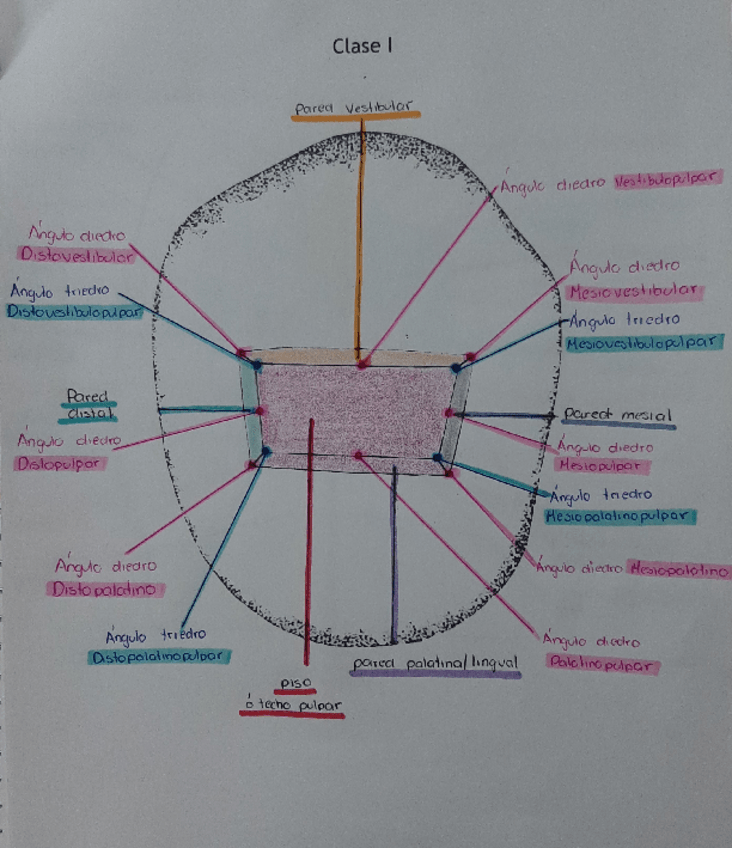 Clase I
Pared vestibular
Ángulo diedro Vestibulopulpar
Ángulo diedro
Distovestibular
Ángulo diedro
Mesiovestibular
Ángulo triedro
Distovestibulopulpar
Ángulo triedro
Mesiovestibulopulpar
Pared
distal
Pared mesial
Ángulo diedro
Distopulpar
Ángulo diedro
Mesiopulpar
Ángulo triedro
Mesiopalatinopulpar
Ángulo diedro
Distopalatino
Ángulo diedro Mesiopalatino
Ángulo triedro
Distopalatinopulpar
Ángulo diedro
Palatinopulpar
pared palatina/lingual
piso
ó techo pulpar